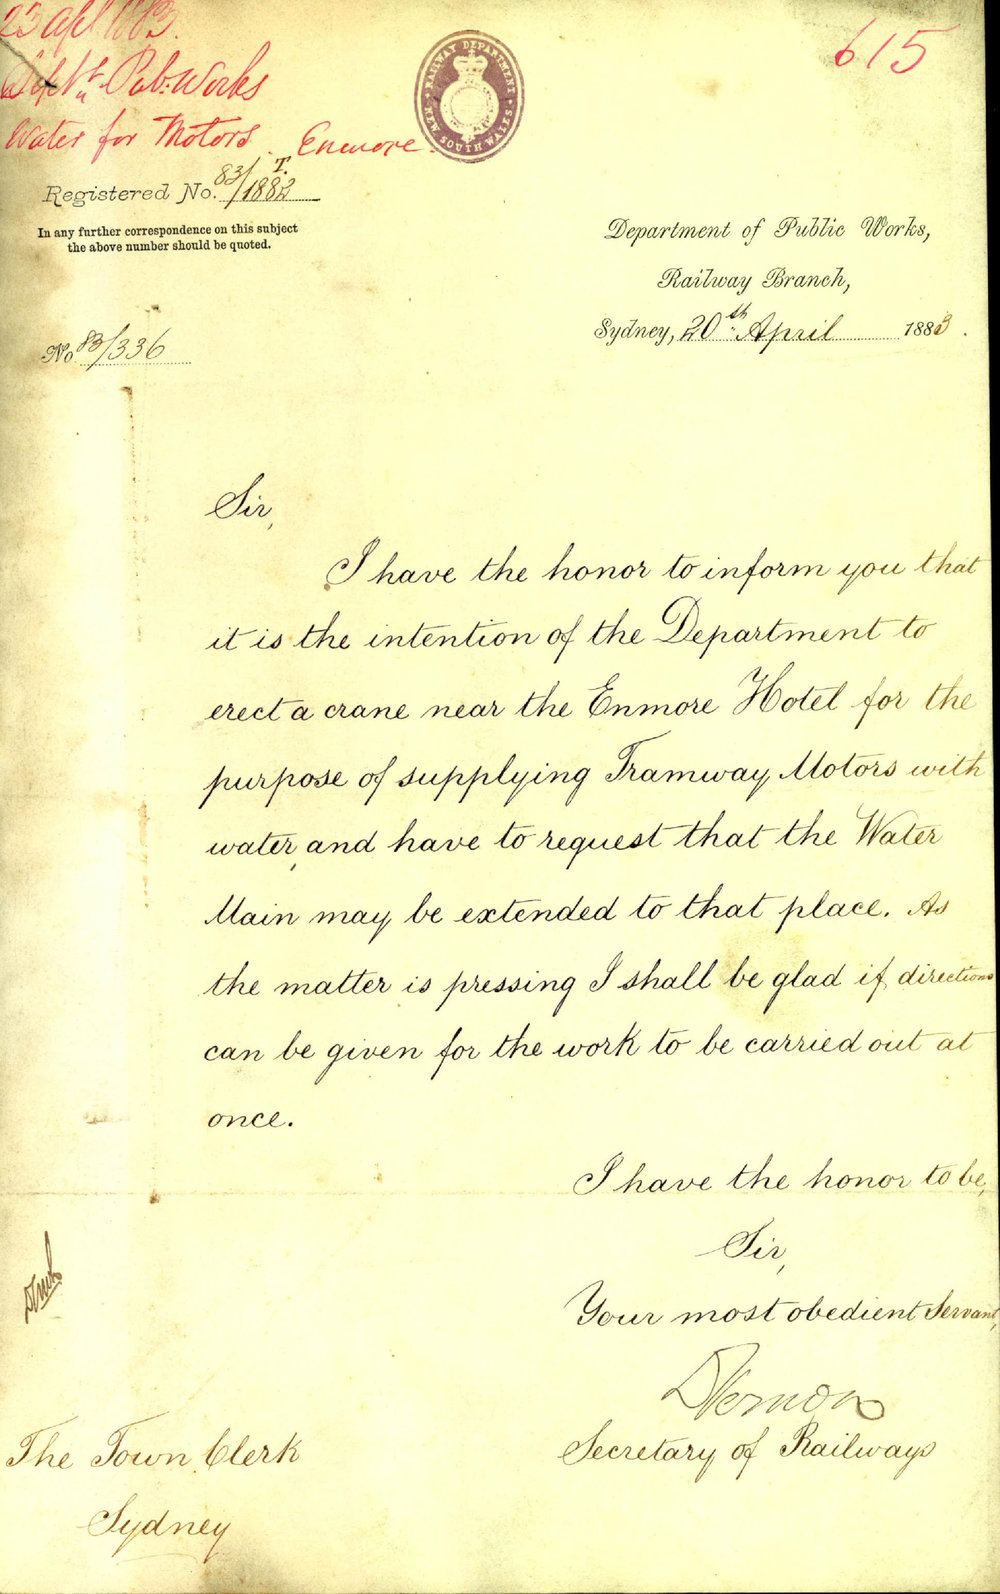 23 apl 1883.
615
Dept. Pub: Works
Water for Motors. Enmore.
RAILWAY DEPARTMENT
NEW SOUTH WALES
Registered No. 83/1882 T.
In any further correspondence on this subject
the above number should be quoted.
Department of Public Works,
Railway Branch,
Sydney, 20th April 1883.
No 83/336
Sir,
I have the honor to inform you that
it is the intention of the Department to
erect a crane near the Enmore Hotel for the
purpose of supplying Tramway Motors with
water, and have to request that the Water
Main may be extended to that place. As
the matter is pressing I shall be glad if directions
can be given for the work to be carried out at
once.
I have the honor to be,
Sir,
Your most obedient Servant,
DVernon
Secretary of Railways
The Town Clerk
Sydney